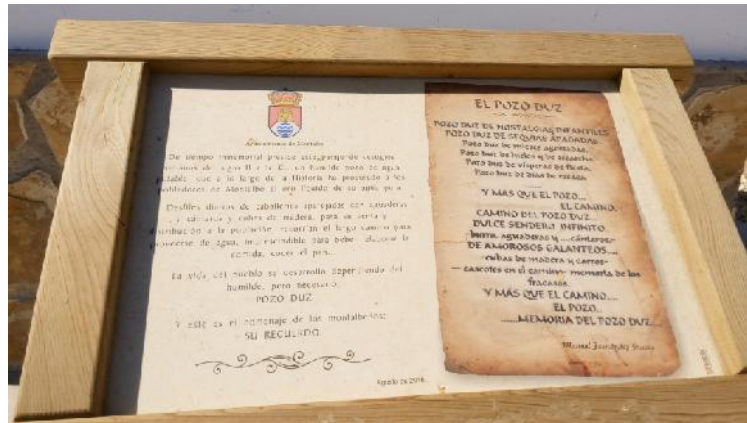 Ayuntamiento de Montalbo
De tiempo inmemorial
romanos del siglo II a. de C., un humilde pozo de agua
potable que a lo largo de la Historia ha procurado a los
pobladores de Montalbo el oro líquido de su agua pura.
Desfiles diarios de caballerías aparejadas con aguaderas
y cántaros y cubas de madera, para su venta y
distribución a la población, recorrían el largo camino para
proveerse de agua, imprescindible para beber, elaborar la
comida, cocer el pan...
La vida del pueblo se desarrolló dependiendo del
humilde, pero necesario:
POZO DUZ
Y este es el homenaje de los montalbeños:
SU RECUERDO.
Agosto de 2016.
EL POZO DUZ
POZO DUZ DE NOSTALGIAS INFANTILES
POZO DUZ DE SEQUIAS APAGADAS.
Pozo duz de mieses agostadas.
Pozo duz de hielos y de escarcha.
Pozo duz de vísperas de fiesta.
Pozo duz de días de
Y MAS QUE EL POZO...
EL CAMINO.
CAMINO DEL POZO DUZ...
DULCE SENDERO INFINITO
-burra, aguaderas y ....cántaros-
DE AMOROSOS GALANTEOS....
-cubas de madera y carros-
- cascotes en el camino- memoria de los
fracasos.
Y MAS QUE EL CAMINO....
EL POZO.
......MEMORIA DEL POZO DUZ....
Manuel